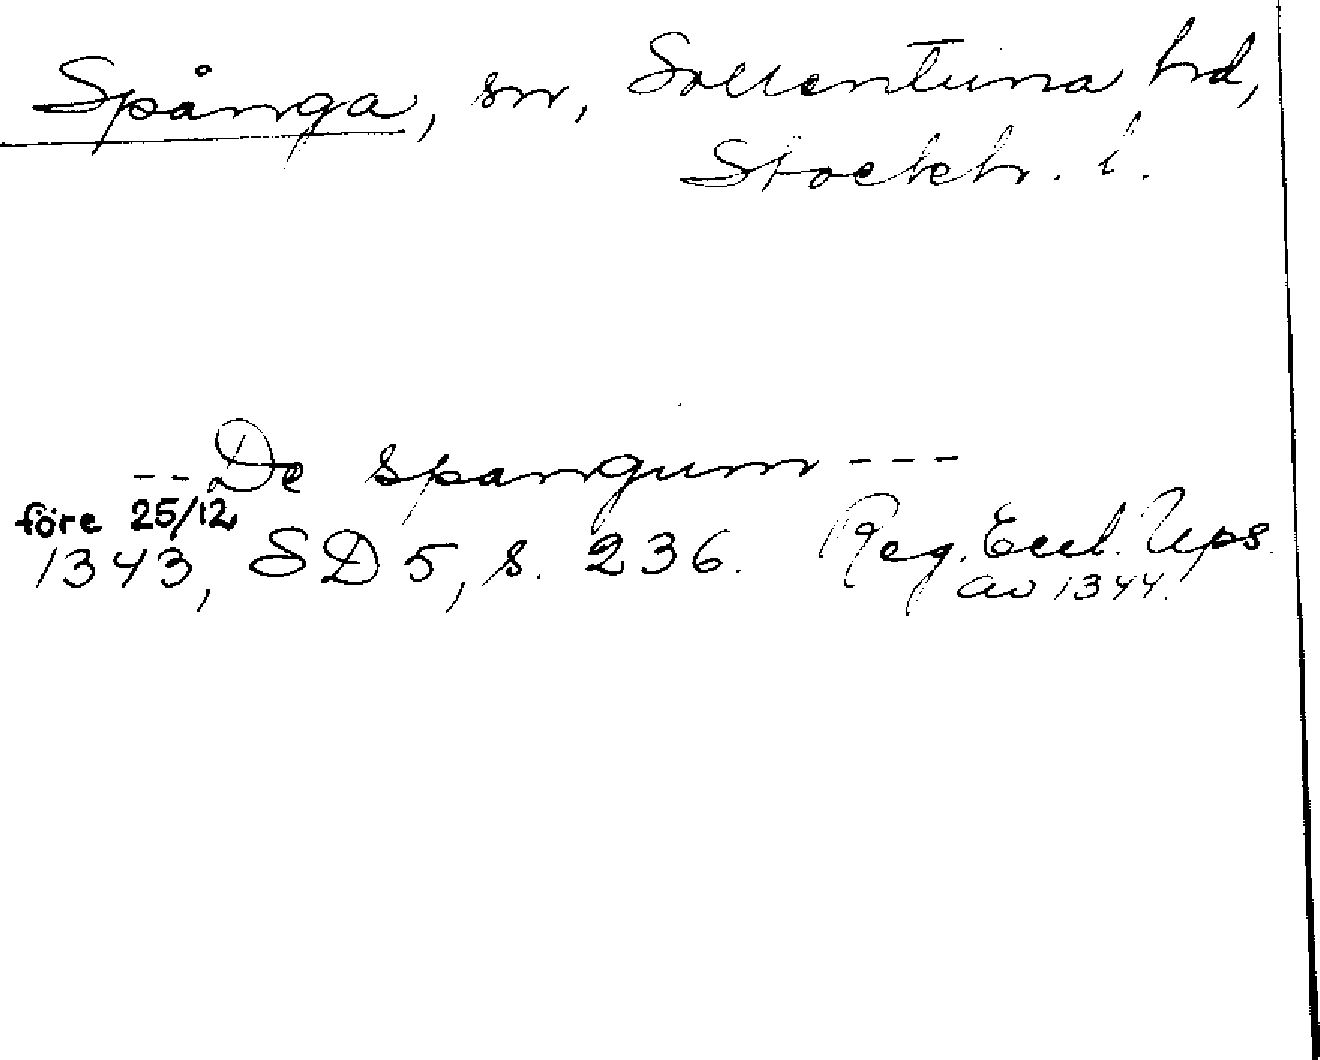 Spånga, sn, Sollentuna hd,
Stockh. l.
-- De spangum ---
före 25/12
1343, SD 5, s. 236. Reg. Eccl. Ups.
av 1344.